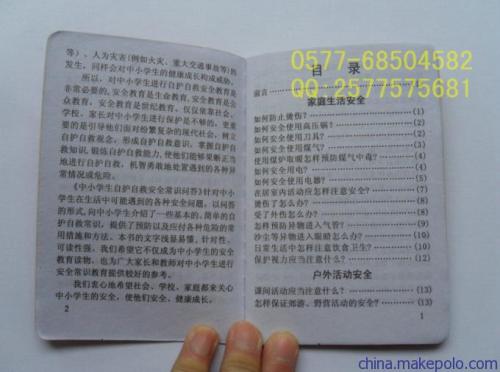 等)、人为灾害(例如火灾、重大交通事故等)的
发生，同样会对中小学生的健康成长构成威胁。
所以，对中小学生进行自护自救安全教育是
非常必要的，安全教育是生命教育、安全教育是公
众教育，安全教育是世纪教育。仅仅依靠社会、
学校、家长对中小学生进行保护是不够的，更重
要的是引导他们面对纷繁复杂的现代社会，树立
自护自救观念，形成自护自救意识，掌握自护自
救知识，锻炼自护自救能力，使他们能够果断正当
地进行自护自救，机智勇敢地处置遇到的各种异
常情况或危险。
《中小学生自护自救安全常识问答》针对中小
学生在生活中可能遇到的各种安全问题，以问答
的形式，向中小学生介绍了一些基本的、简单的自
护自救常识，提供了预防以及应付各种危险的常
用措施和方法。本书的文字浅显易懂，针对性、
可读性强。我们希望它不仅成为中小学生的安全
教育读物，也为广大家长和教师对中小学生进行
安全常识教育提供较好的参考。
我们衷心地希望社会、学校、家庭都来关心
中小学生的安全，使他们安全、健康成长。
2
0577-68504582
QQ:2577575681
目 录
前言
家庭生活安全
如何防止烫伤?(1)
如何安全使用高压锅?(1)
如何安全使用刀具?(2)
如何安全使用煤气?(3)
使用煤炉取暖怎样预防煤气中毒?(4)
如何安全用电?(5)
如何安全使用电器?(6)
在居室内活动应怎样注意安全?(7)
烫伤了怎么办?(8)
受了外伤怎么办?(9)
怎样预防异物进入气管?(10)
沙尘等异物进入眼睛怎么办?(10)
日常生活中怎样注意饮食卫生?(11)
保护视力应当注意什么?(12)
户外活动安全
课间活动应当注意什么?(13)
怎样保证郊游、野营活动的安全?(13)
1
china.makepolo.com